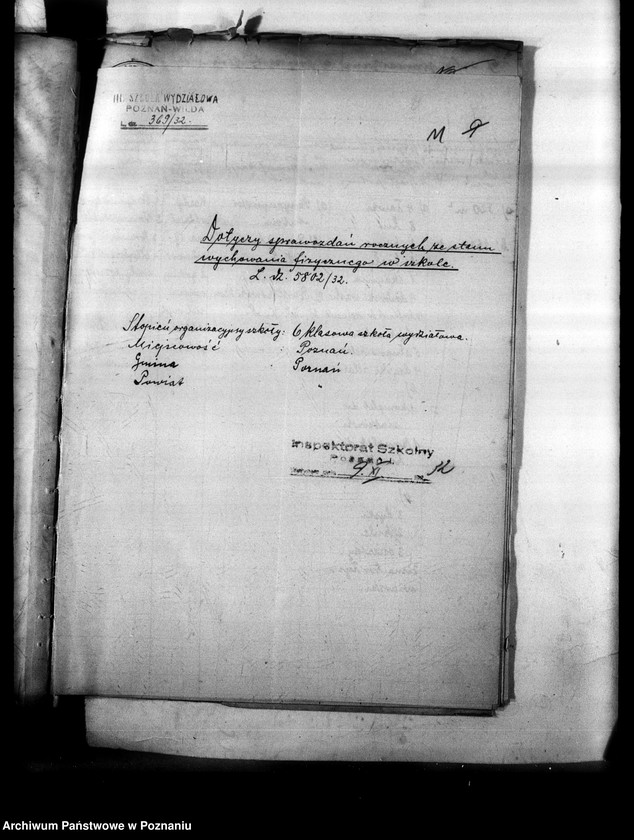 III. SZKOŁA WYDZIAŁOWA
POZNAŃ-WILDA
L. 369/32.
Dotyczy sprawozdań rocznych ze stanu
wychowania fizycznego w szkole.
L. dz. 5802/32.
Stopień organizacyjny szkoły: 6 klasowa szkoła wydziałowa.
Miejscowość : Poznań.
Gmina : Poznań
Powiat "
Inspektorat Szkolny
Poznań
5. XI. 32
Archiwum Państwowe w Poznaniu